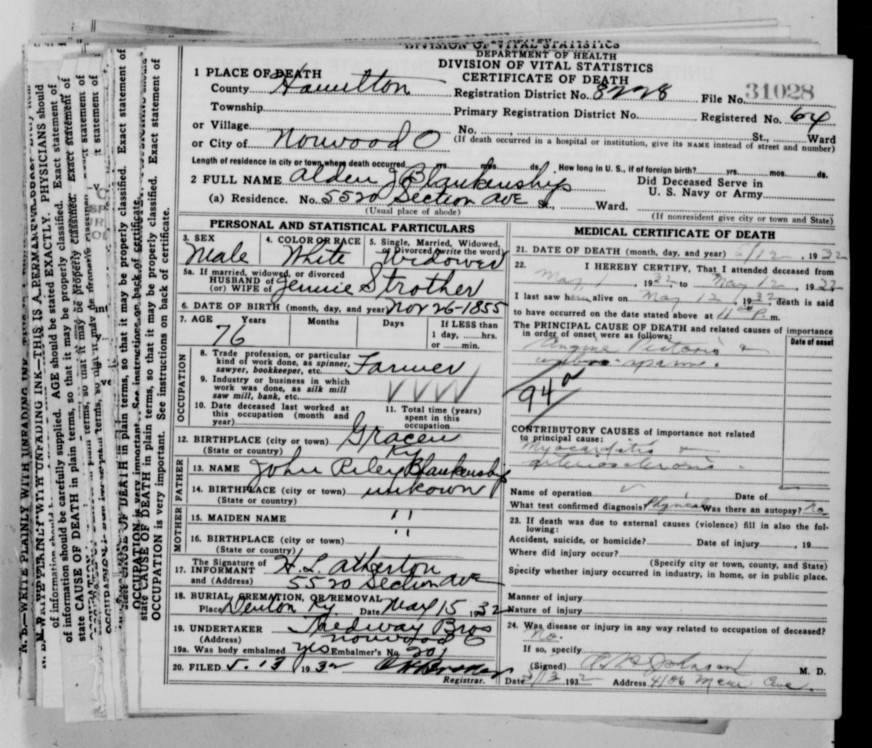 DIVISION OF VITAL STATISTICS
DEPARTMENT OF HEALTH
DIVISION OF VITAL STATISTICS
CERTIFICATE OF DEATH
1 PLACE OF DEATH
County Hamilton Registration District No. 8228 File No. 31028
Township Primary Registration District No. Registered No. 64
or Village No. , St., Ward
or City of Norwood O (If death occurred in a hospital or institution, give its NAME instead of street and number)
Length of residence in city or town where death occurred yrs. mos. ds. How long in U. S., if of foreign birth? yrs. mos. ds.
2 FULL NAME Alden J Blankenship Did Deceased Serve in U. S. Navy or Army
(a) Residence. No. 5520 Section Ave , Ward.
(Usual place of abode) (If nonresident give city or town and State)
PERSONAL AND STATISTICAL PARTICULARS
3. SEX Male 4. COLOR OR RACE White 5. Single, Married, Widowed, or Divorced (write the word) Widowed
5a. If married, widowed, or divorced
HUSBAND of
(or) WIFE of Jennie Strother
6. DATE OF BIRTH (month, day, and year) Nov 26-1855
7. AGE Years 76 Months Days If LESS than 1 day, ....hrs. or ....min.
OCCUPATION
8. Trade profession, or particular kind of work done, as spinner, sawyer, bookkeeper, etc. Farmer
9. Industry or business in which work was done, as silk mill saw mill, bank, etc. VVVV
10. Date deceased last worked at this occupation (month and year)
11. Total time (years) spent in this occupation
12. BIRTHPLACE (city or town)
(State or country) Ky
FATHER
13. NAME John Riley Blankenship
14. BIRTHPLACE (city or town) unkown
(State or country)
MOTHER
15. MAIDEN NAME "
16. BIRTHPLACE (city or town) "
(State or country)
17. The Signature of INFORMANT H. L. Atherton
and (Address) 5520 Section Ave
18. BURIAL, CREMATION, OR REMOVAL
Place Ky. Date May 15, 1932
19. UNDERTAKER Bros
(Address) Norwood
19a. Was body embalmed yes Embalmer's No. 201
20. FILED 5.13 1932
Registrar.
MEDICAL CERTIFICATE OF DEATH
21. DATE OF DEATH (month, day, and year) 5/12, 1932
22. I HEREBY CERTIFY, That I attended deceased from
May 1, 1932 to May 12, 1932
I last saw him alive on May 12, 1932 death is said
to have occurred on the date stated above at 11 P.m.
The PRINCIPAL CAUSE OF DEATH and related causes of importance in order of onset were as follows: Date of onset
Angina Pectoris &
spasm.
94a
CONTRIBUTORY CAUSES of importance not related to principal cause:
Myocarditis
arteriosclerosis.
Name of operation Date of
What test confirmed diagnosis? Physical Was there an autopsy? No
23. If death was due to external causes (violence) fill in also the following:
Accident, suicide, or homicide? Date of injury , 19
Where did injury occur?
(Specify city or town, county, and State)
Specify whether injury occurred in industry, in home, or in public place.
Manner of injury
Nature of injury
24. Was disease or injury in any way related to occupation of deceased?
No.
If so, specify
(Signed) Johnson M. D.
Date 5/13 1932 Address 4106 Ave.
N. B.—WRITE PLAINLY WITH UNFADING INK—THIS IS A PERMANENT
of information should be carefully supplied. AGE should be stated EXACTLY. PHYSICIANS should
state CAUSE OF DEATH in plain terms, so that it may be properly classified. Exact statement of
OCCUPATION is very important. See instructions on back of certificate.